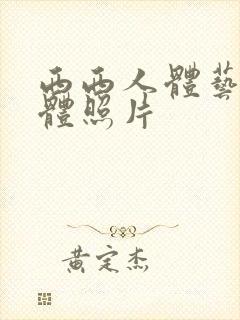 西西人體藝
體照片
黃定杰